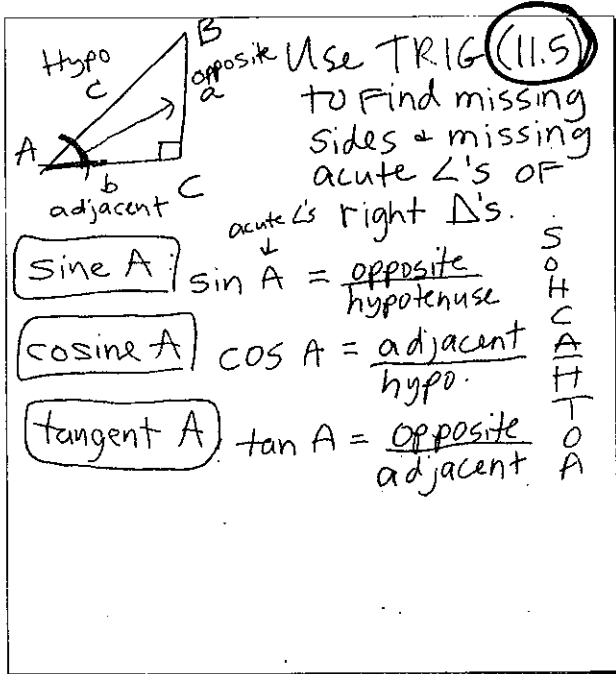 B
Hypo
c
opposite
a
A
b
C
adjacent
Use TRIG (11.5)
to find missing
sides & missing
acute ∠'s OF
right Δ's.
acute ∠'s
↓
sine A : sin A = opposite
hypotenuse
cosine A cos A = adjacent
hypo.
tangent A tan A = opposite
adjacent
S
O
H
C
A
H
T
O
A